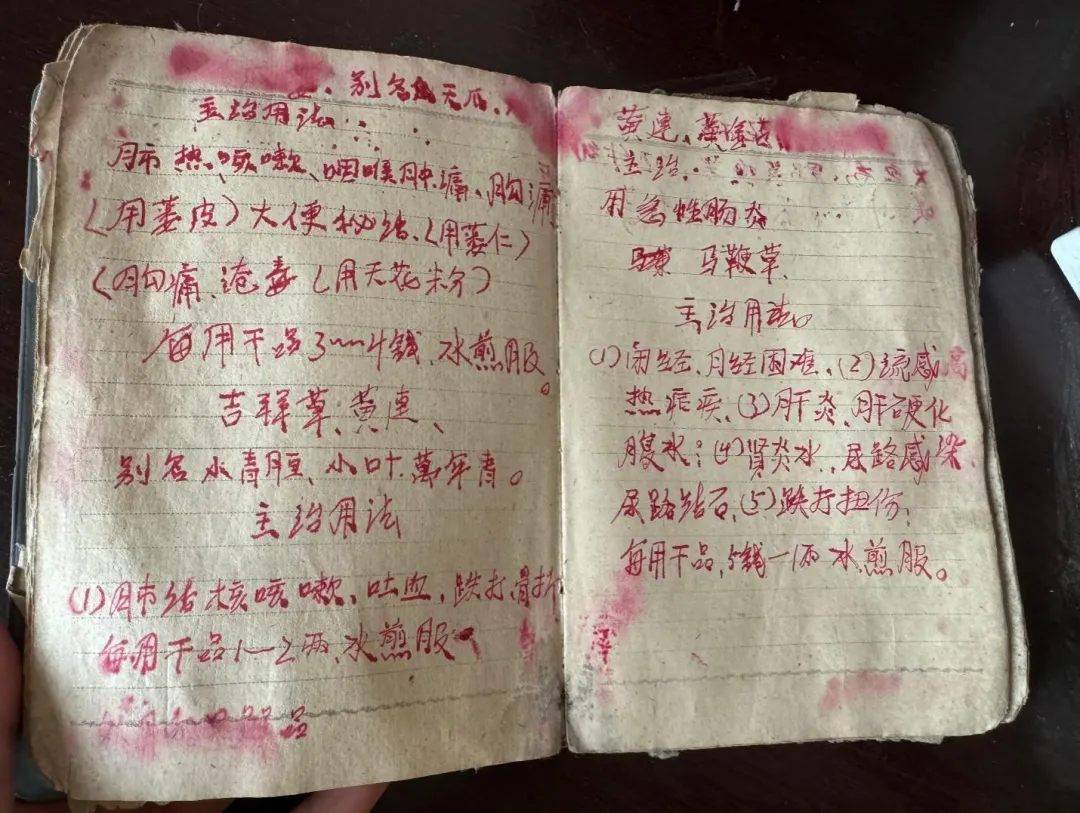 别名 天瓜、
主治用法:
肺热、咳嗽、咽喉肿痛、胸痛
(用蒌皮)大便秘结、(用蒌仁)
(胸痛、疮毒(用天花粉)
每用干品3~4錢、水煎服。
吉祥草、黄连、
别名水青胆、小叶萬年青。
主治用法
(1)肺结核咳嗽、吐血、跌打骨折
每用干品1—2两、水煎服
品
黄连、
主治、
用急性肠炎
马鞭草、
主治用法。
(1)闭经、月经困难、(2)流感高
热疟疾、(3)肝炎、肝硬化
腹水;(4)肾炎水、尿路感染、
尿路结石、(5)跌打扭伤、
每用干品、5錢—1两 水煎服。